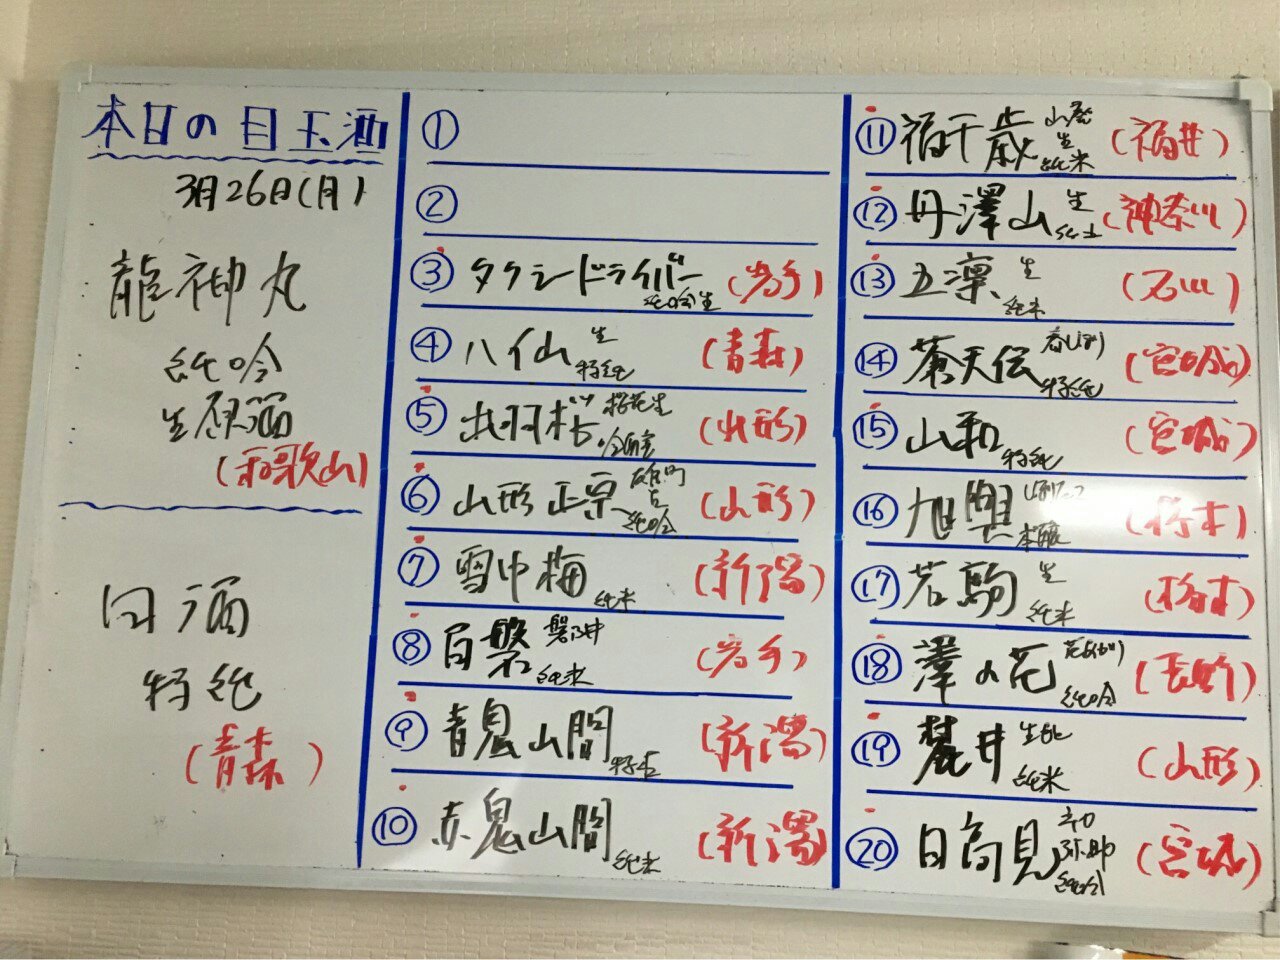 本日の目玉酒
3月26日(月)
龍神丸
純吟
生原酒
(和歌山)
田酒
特純
(青森)
①
②
③ タクシードライバー 純吟生 (岩手)
④ 八仙 生 特純 (青森)
⑤ 出羽桜 桜花生 吟醸 (山形)
⑥ 山形正宗 雄町 純吟 (山形)
⑦ 雪中梅 純米 (新潟)
⑧ 月磐 磐井 純米 (岩手)
⑨ 青鬼山間 特本 (新潟)
⑩ 赤鬼山間 純米 (新潟)
⑪ 福千歳 山廃 生 純米 (福井)
⑫ 丹澤山 生 純米 (神奈川)
⑬ 五凛 生 純米 (石川)
⑭ 蒼天伝 春しぼり 特純 (宮城)
⑮ 山和 特純 (宮城)
⑯ 旭興 本醸 (栃木)
⑰ 若駒 生 純米 (栃木)
⑱ 澤の花 純吟 (長野)
⑲ 麓井 生酛 純米 (山形)
⑳ 日高見 弥助 純吟 (宮城)